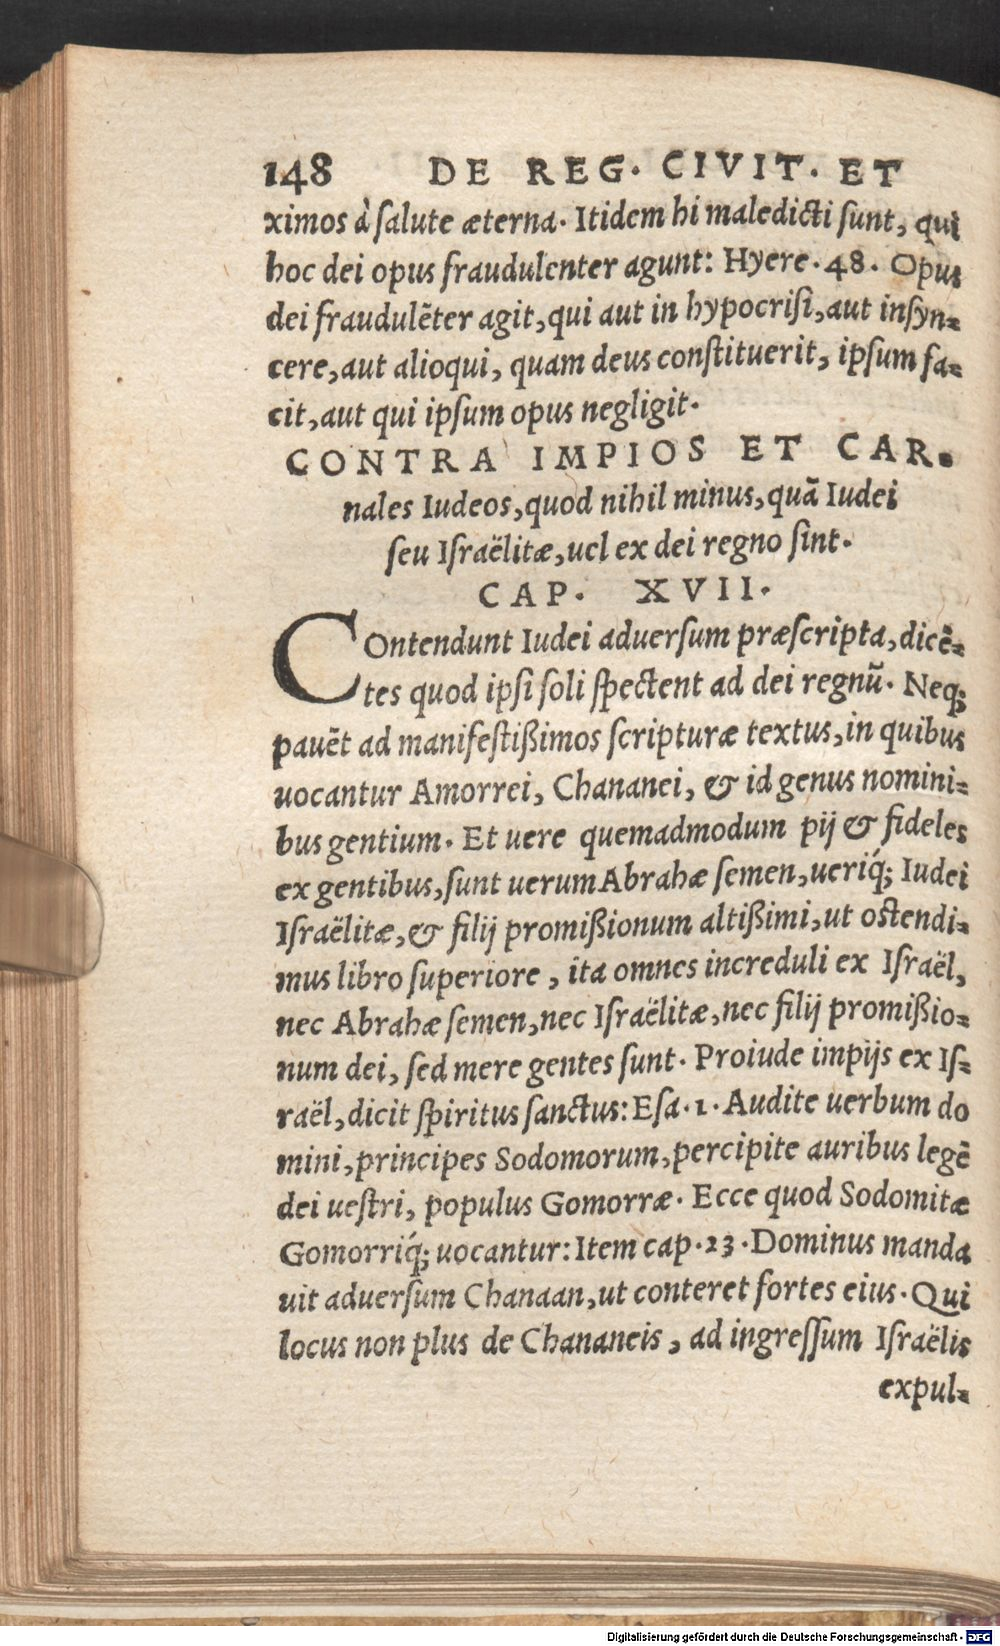 148 DE REG. CIVIT. ET
ximos à salute æterna. Itidem hi maledicti sunt, qui
hoc dei opus fraudulenter agunt: Hyere. 48. Opus
dei fraudulēter agit, qui aut in hypocrisi, aut insyn=
cere, aut alioqui, quam deus constituerit, ipsum fa=
cit, aut qui ipsum opus negligit.
CONTRA IMPIOS ET CAR=
nales Iudeos, quod nihil minus, quā Iudei
seu Israëlitæ, uel ex dei regno sint.
CAP. XVII.
COntendunt Iudei aduersum præscripta, dicē=
tes quod ipsi soli spectent ad dei regnū. Neq;
pauēt ad manifestißimos scripturæ textus, in quibus
uocantur Amorrei, Chananei, & id genus nomini=
bus gentium. Et uere quemadmodum pij & fideles
ex gentibus, sunt uerum Abrahæ semen, ueriq́; Iudei
Israëlitæ, & filij promißionum altißimi, ut ostendi=
mus libro superiore, ita omnes increduli ex Israël,
nec Abrahæ semen, nec Israëlitæ, nec filij promißio=
num dei, sed mere gentes sunt. Proiude impijs ex Is=
raël, dicit spiritus sanctus: Esa. 1. Audite uerbum do
mini, principes Sodomorum, percipite auribus legē
dei uestri, populus Gomorræ. Ecce quod Sodomitæ
Gomorriq́; uocantur: Item cap. 23. Dominus manda
uit aduersum Chanaan, ut conteret fortes eius. Qui
locus non plus de Chananeis, ad ingressum Israëlis
expul=
Digitalisierung gefördert durch die Deutsche Forschungsgemeinschaft - DFG